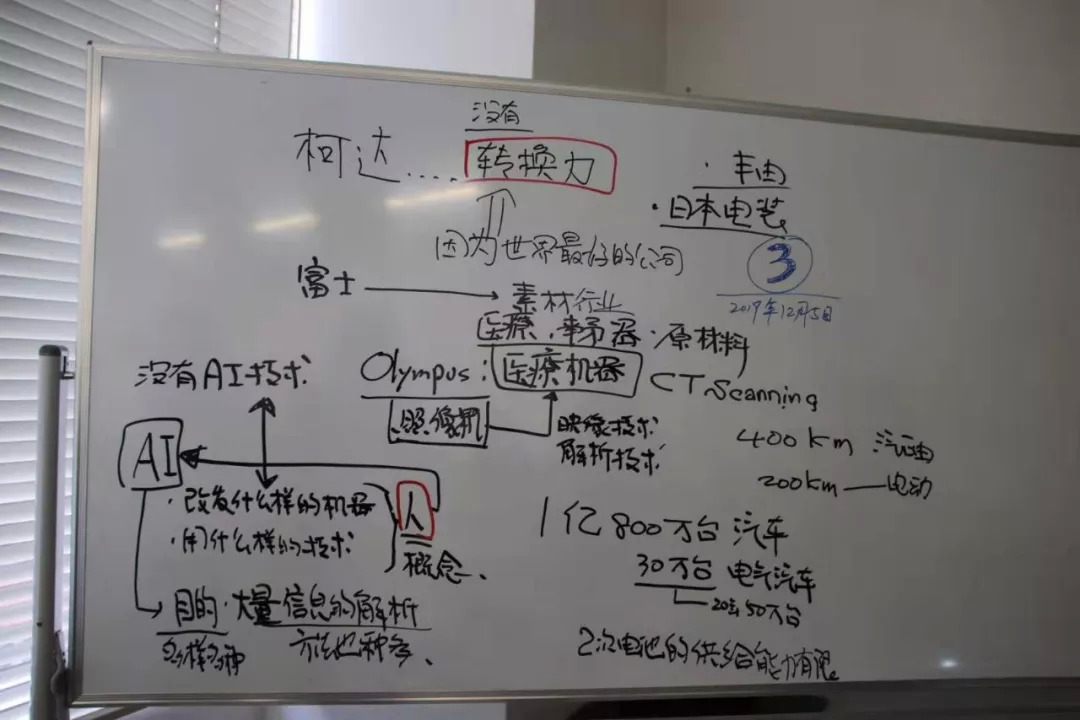 没有
柯达....转换力
因为世界最好的公司
富士
素材行业
医療
原材料
Olympus:医療机器
CT Scanning
照像机
映像技术
解析技术
・丰田
・日本电装
3
2019年12月5日
没有AI技术
AI
・改发什么样的机器
・用什么样的技术
人
概念、
目的・大量信息的解析
多样多种
方法也种多、
400km 汽油
200km——电动
1亿800万台 汽车
30万台 电气汽车
50万台
2次电池的供给能力有限。